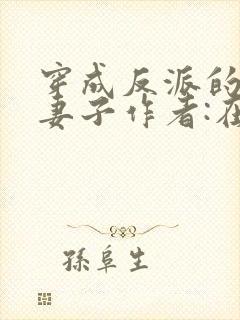 穿成反派的
妻子作者:在
孫阜生